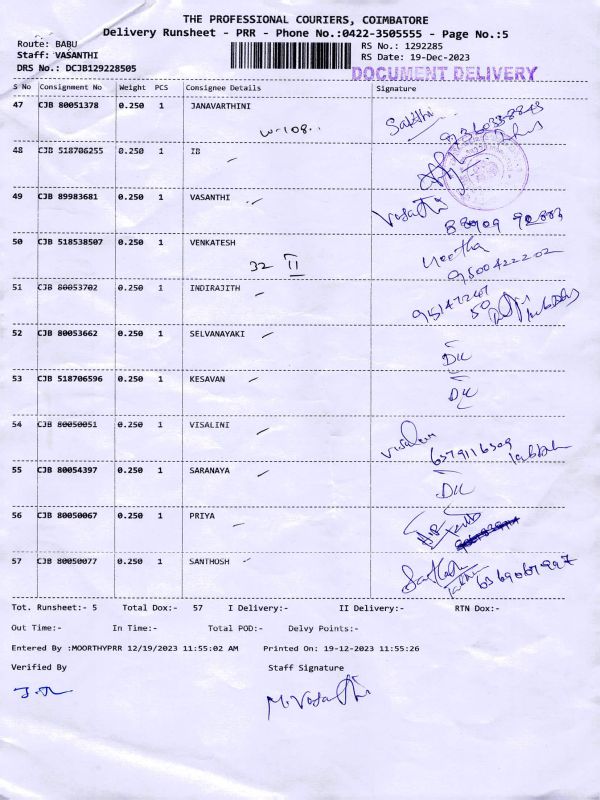 THE PROFESSIONAL COURIERS, COIMBATORE
Delivery Runsheet - PRR - Phone No.:0422-3505555 - Page No.:5
Route: BABU RS No.: 1292285
Staff: VASANTHI RS Date: 19-Dec-2023
DRS No.: DCJB129228505 DOCUMENT DELIVERY
S No Consignment No Weight PCS Consignee Details Signature
47 CJB 80051378 0.250 1 JANAVARTHINI
W-108
48 CJB 518706255 0.250 1 IB
49 CJB 89983681 0.250 1 VASANTHI Vasanthi
50 CJB 518538507 0.250 1 VENKATESH
32 II 9500422202
51 CJB 80053702 0.250 1 INDIRAJITH
52 CJB 80053662 0.250 1 SELVANAYAKI DK
53 CJB 518706596 0.250 1 KESAVAN DK
54 CJB 80050051 0.250 1 VISALINI
6379116309
55 CJB 80054397 0.250 1 SARANAYA DK
56 CJB 80050067 0.250 1 PRIYA
57 CJB 80050077 0.250 1 SANTHOSH Santhosh
Tot. Runsheet:- 5 Total Dox:- 57 I Delivery:- II Delivery:- RTN Dox:-
Out Time:- In Time:- Total POD:- Delvy Points:-
Entered By :MOORTHYPRR 12/19/2023 11:55:02 AM Printed On: 19-12-2023 11:55:26
Verified By Staff Signature
M. Vasanthi